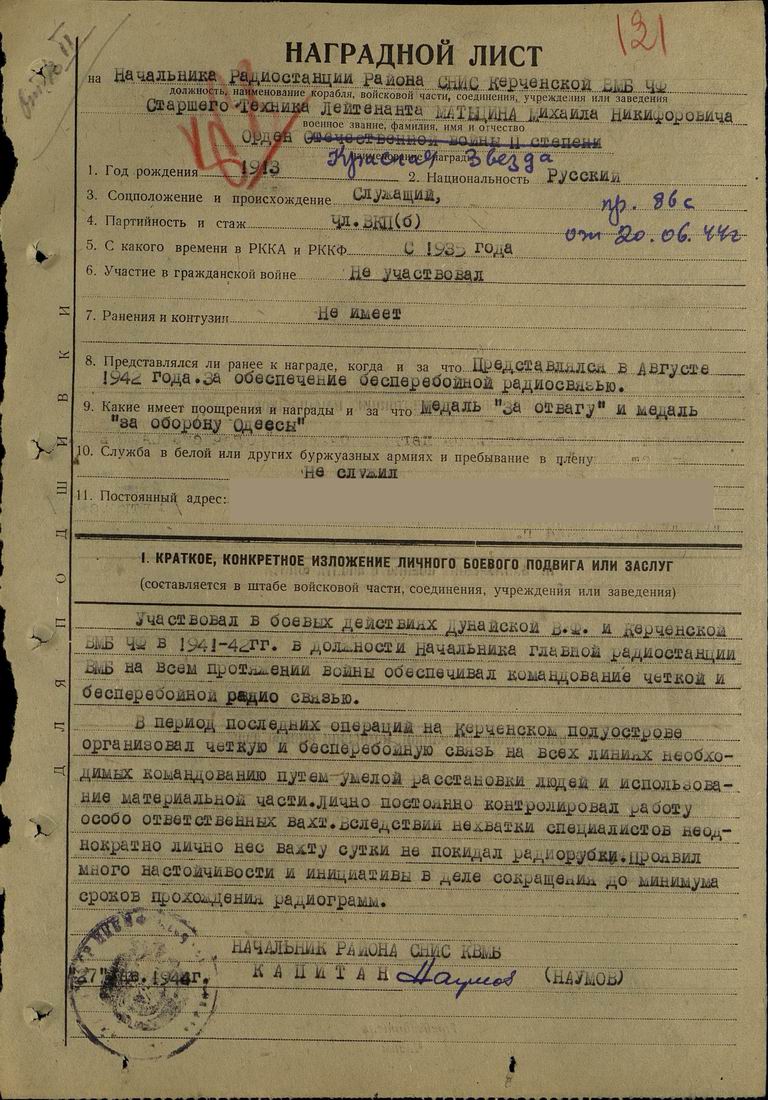 121
НАГРАДНОЙ ЛИСТ
на Начальника Радиостанции Района СНИС Керченской ВМБ ЧФ
должность, наименование корабля, войсковой части, соединения, учреждения или заведения
Старшего Техника Лейтенанта МАТЫЦИНА Михаила Никифоровича
военное звание, фамилия, имя и отчество
Орден Отечественной войны II степени
Красная Звезда
1. Год рождения 1913 2. Национальность Русский
3. Соцположение и происхождение Служащий,
пр. 86с
4. Партийность и стаж Чл.ВКП(б)
от 20.06.44г
5. С какого времени в РККА и РККФ С 1935 года
6. Участие в гражданской войне Не участвовал
7. Ранения и контузии Не имеет
8. Представлялся ли ранее к награде, когда и за что Представлялся в Августе
1942 года.За обеспечение бесперебойной радиосвязью.
9. Какие имеет поощрения и награды и за что Медаль "За отвагу" и медаль
"за оборону Одессы"
10. Служба в белой или других буржуазных армиях и пребывание в плену
Не служил
11. Постоянный адрес:
ДЛЯ ПОДШИВКИ
I. КРАТКОЕ, КОНКРЕТНОЕ ИЗЛОЖЕНИЕ ЛИЧНОГО БОЕВОГО ПОДВИГА ИЛИ ЗАСЛУГ
(составляется в штабе войсковой части, соединения, учреждения или заведения)
Участвовал в боевых действиях Дунайской В.Ф. и Керченской
ВМБ ЧФ в 1941-42гг. в должности Начальника главной радиостанции
ВМБ на всем протяжении войны обеспечивал командование четкой и
бесперебойной радио связью.
В период последних операций на Керченском полуострове
организовал четкую и бесперебойную связь на всех линиях необхо-
димых командованию путем умелой расстановки людей и использова-
ние материальной части.Лично постоянно контролировал работу
особо ответственных вахт.Вследствии нехватки специалистов неод-
нократно лично нес вахту сутки не покидал радиорубки.Проявил
много настойчивости и инициативы в деле сокращения до минимума
сроков прохождения радиограмм.
НАЧАЛЬНИК РАЙОНА СНИС КВМБ
"27" 1944г. КАПИТАН Наумов (НАУМОВ)